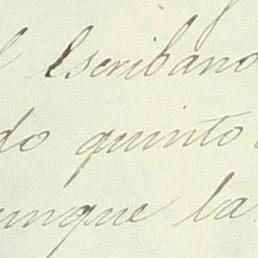 l Escribano
do quinto.
unque la